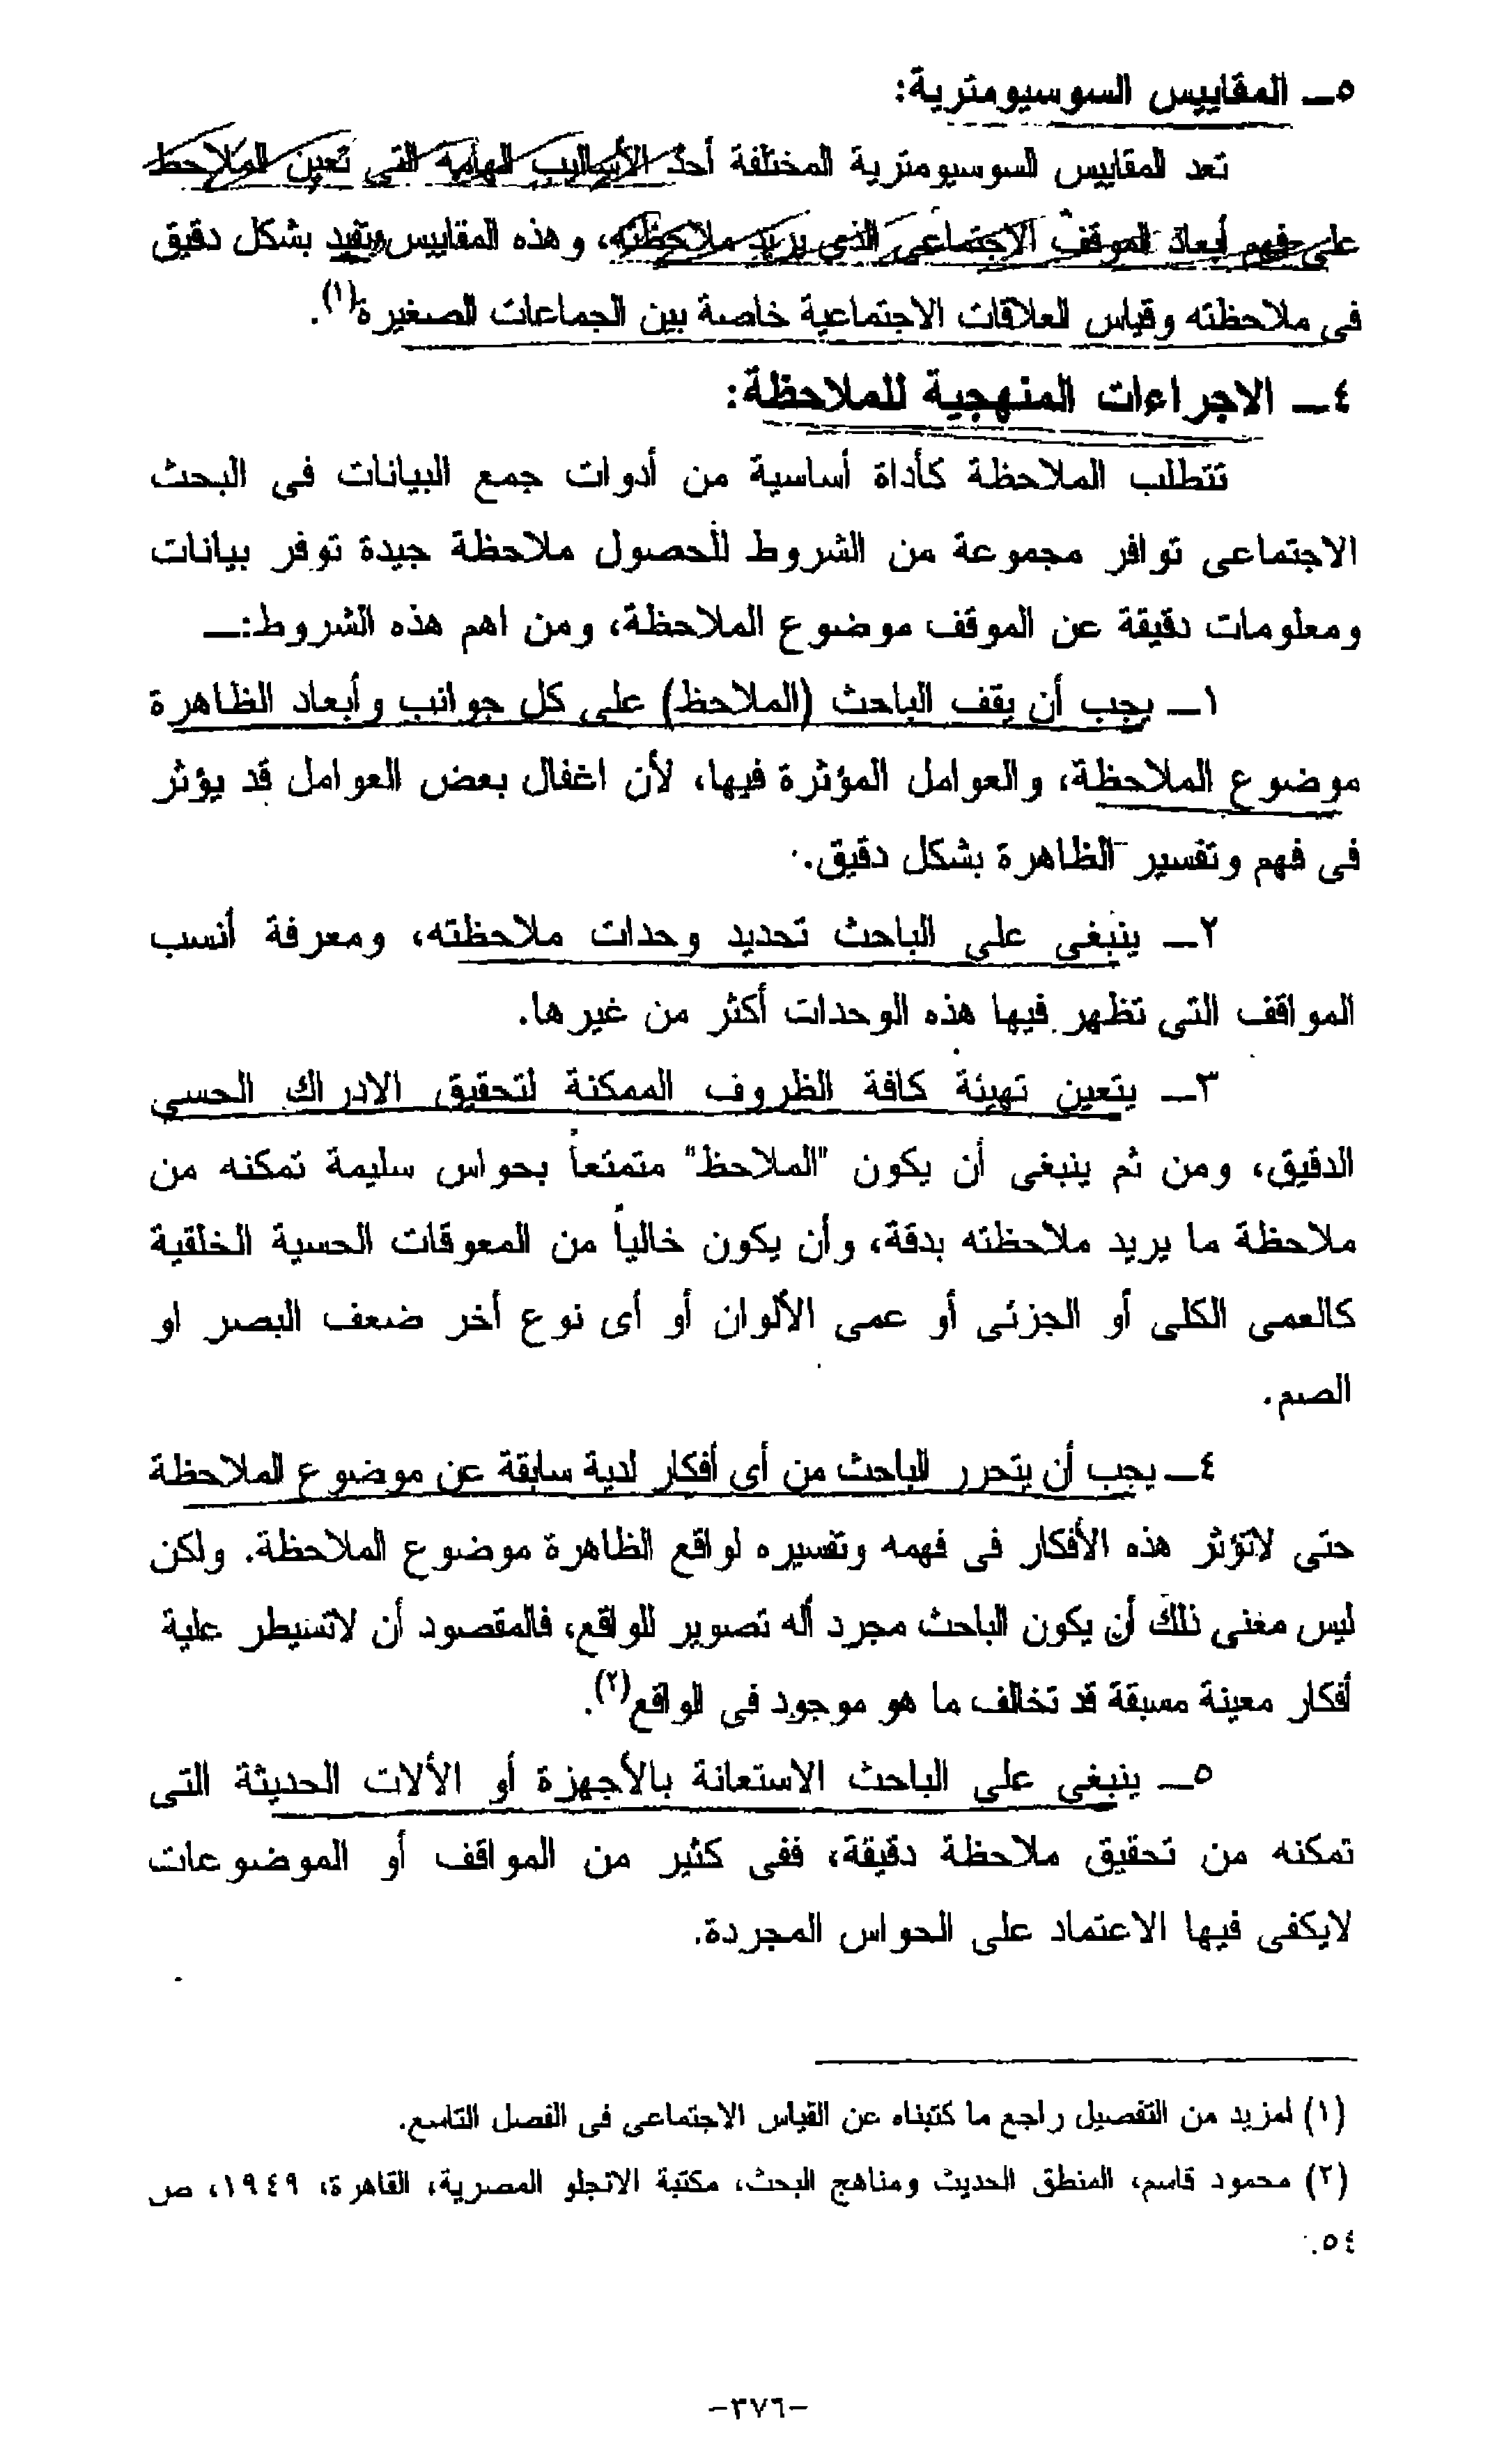 ٥ــ المقاييس السوسيومترية:
تعد المقاييس السوسيومترية المختلفة أحد الأساليب الهامة التى تعين الملاحظ
على فهم أبعاد الموقف الاجتماعى الذى يريد ملاحظته، وهذه المقاييس وتفيد بشكل دقيق
فى ملاحظته وقياس العلاقات الاجتماعية خاصة بين الجماعات الصغيرة(١).
٤ــ الاجراءات المنهجية للملاحظة:
تتطلب الملاحظة كأداة أساسية من أدوات جمع البيانات فى البحث
الاجتماعى توافر مجموعة من الشروط للحصول ملاحظة جيدة توفر بيانات
ومعلومات دقيقة عن الموقف موضوع الملاحظة، ومن اهم هذه الشروط:ــ
١ــ يجب أن يقف الباحث (الملاحظ) على كل جوانب وأبعاد الظاهرة
موضوع الملاحظة، والعوامل المؤثرة فيها، لأن اغفال بعض العوامل قد يؤثر
فى فهم وتفسير الظاهرة بشكل دقيق.
٢ــ ينبغى على الباحث تحديد وحدات ملاحظته، ومعرفة أنسب
المواقف التى تظهر فيها هذه الوحدات أكثر من غيرها.
٣ــ يتعين تهيئة كافة الظروف الممكنة لتحقيق الادراك الحسي
الدقيق، ومن ثم ينبغى أن يكون "الملاحظ" متمتعاً بحواس سليمة تمكنه من
ملاحظة ما يريد ملاحظته بدقة، وأن يكون خالياً من المعوقات الحسية الخلقية
كالعمى الكلى أو الجزئى أو عمى الألوان أو أى نوع أخر ضعف البصر او
الصم.
٤ــ يجب أن يتحرر الباحث من أى أفكار لدية سابقة عن موضوع الملاحظة
حتى لاتؤثر هذه الأفكار فى فهمه وتفسيره لواقع الظاهرة موضوع الملاحظة. ولكن
ليس معنى ذلك أن يكون الباحث مجرد أله تصوير للواقع، فالمقصود أن لاتسيطر علية
أفكار معينة مسبقة قد تخالف ما هو موجود فى الواقع(٢).
٥ــ ينبغى على الباحث الاستعانة بالأجهزة أو الألات الحديثة التى
تمكنه من تحقيق ملاحظة دقيقة، ففى كثير من المواقف أو الموضوعات
لايكفى فيها الاعتماد على الحواس المجردة.
(١) لمزيد من التفصيل راجع ما كتبناه عن القياس الاجتماعى فى الفصل التاسع.
(٢) محمود قاسم، المنطق الحديث ومناهج البحث، مكتبة الانجلو المصرية، القاهرة، ١٩٤٩، ص
٥٤.
-٣٧٦-